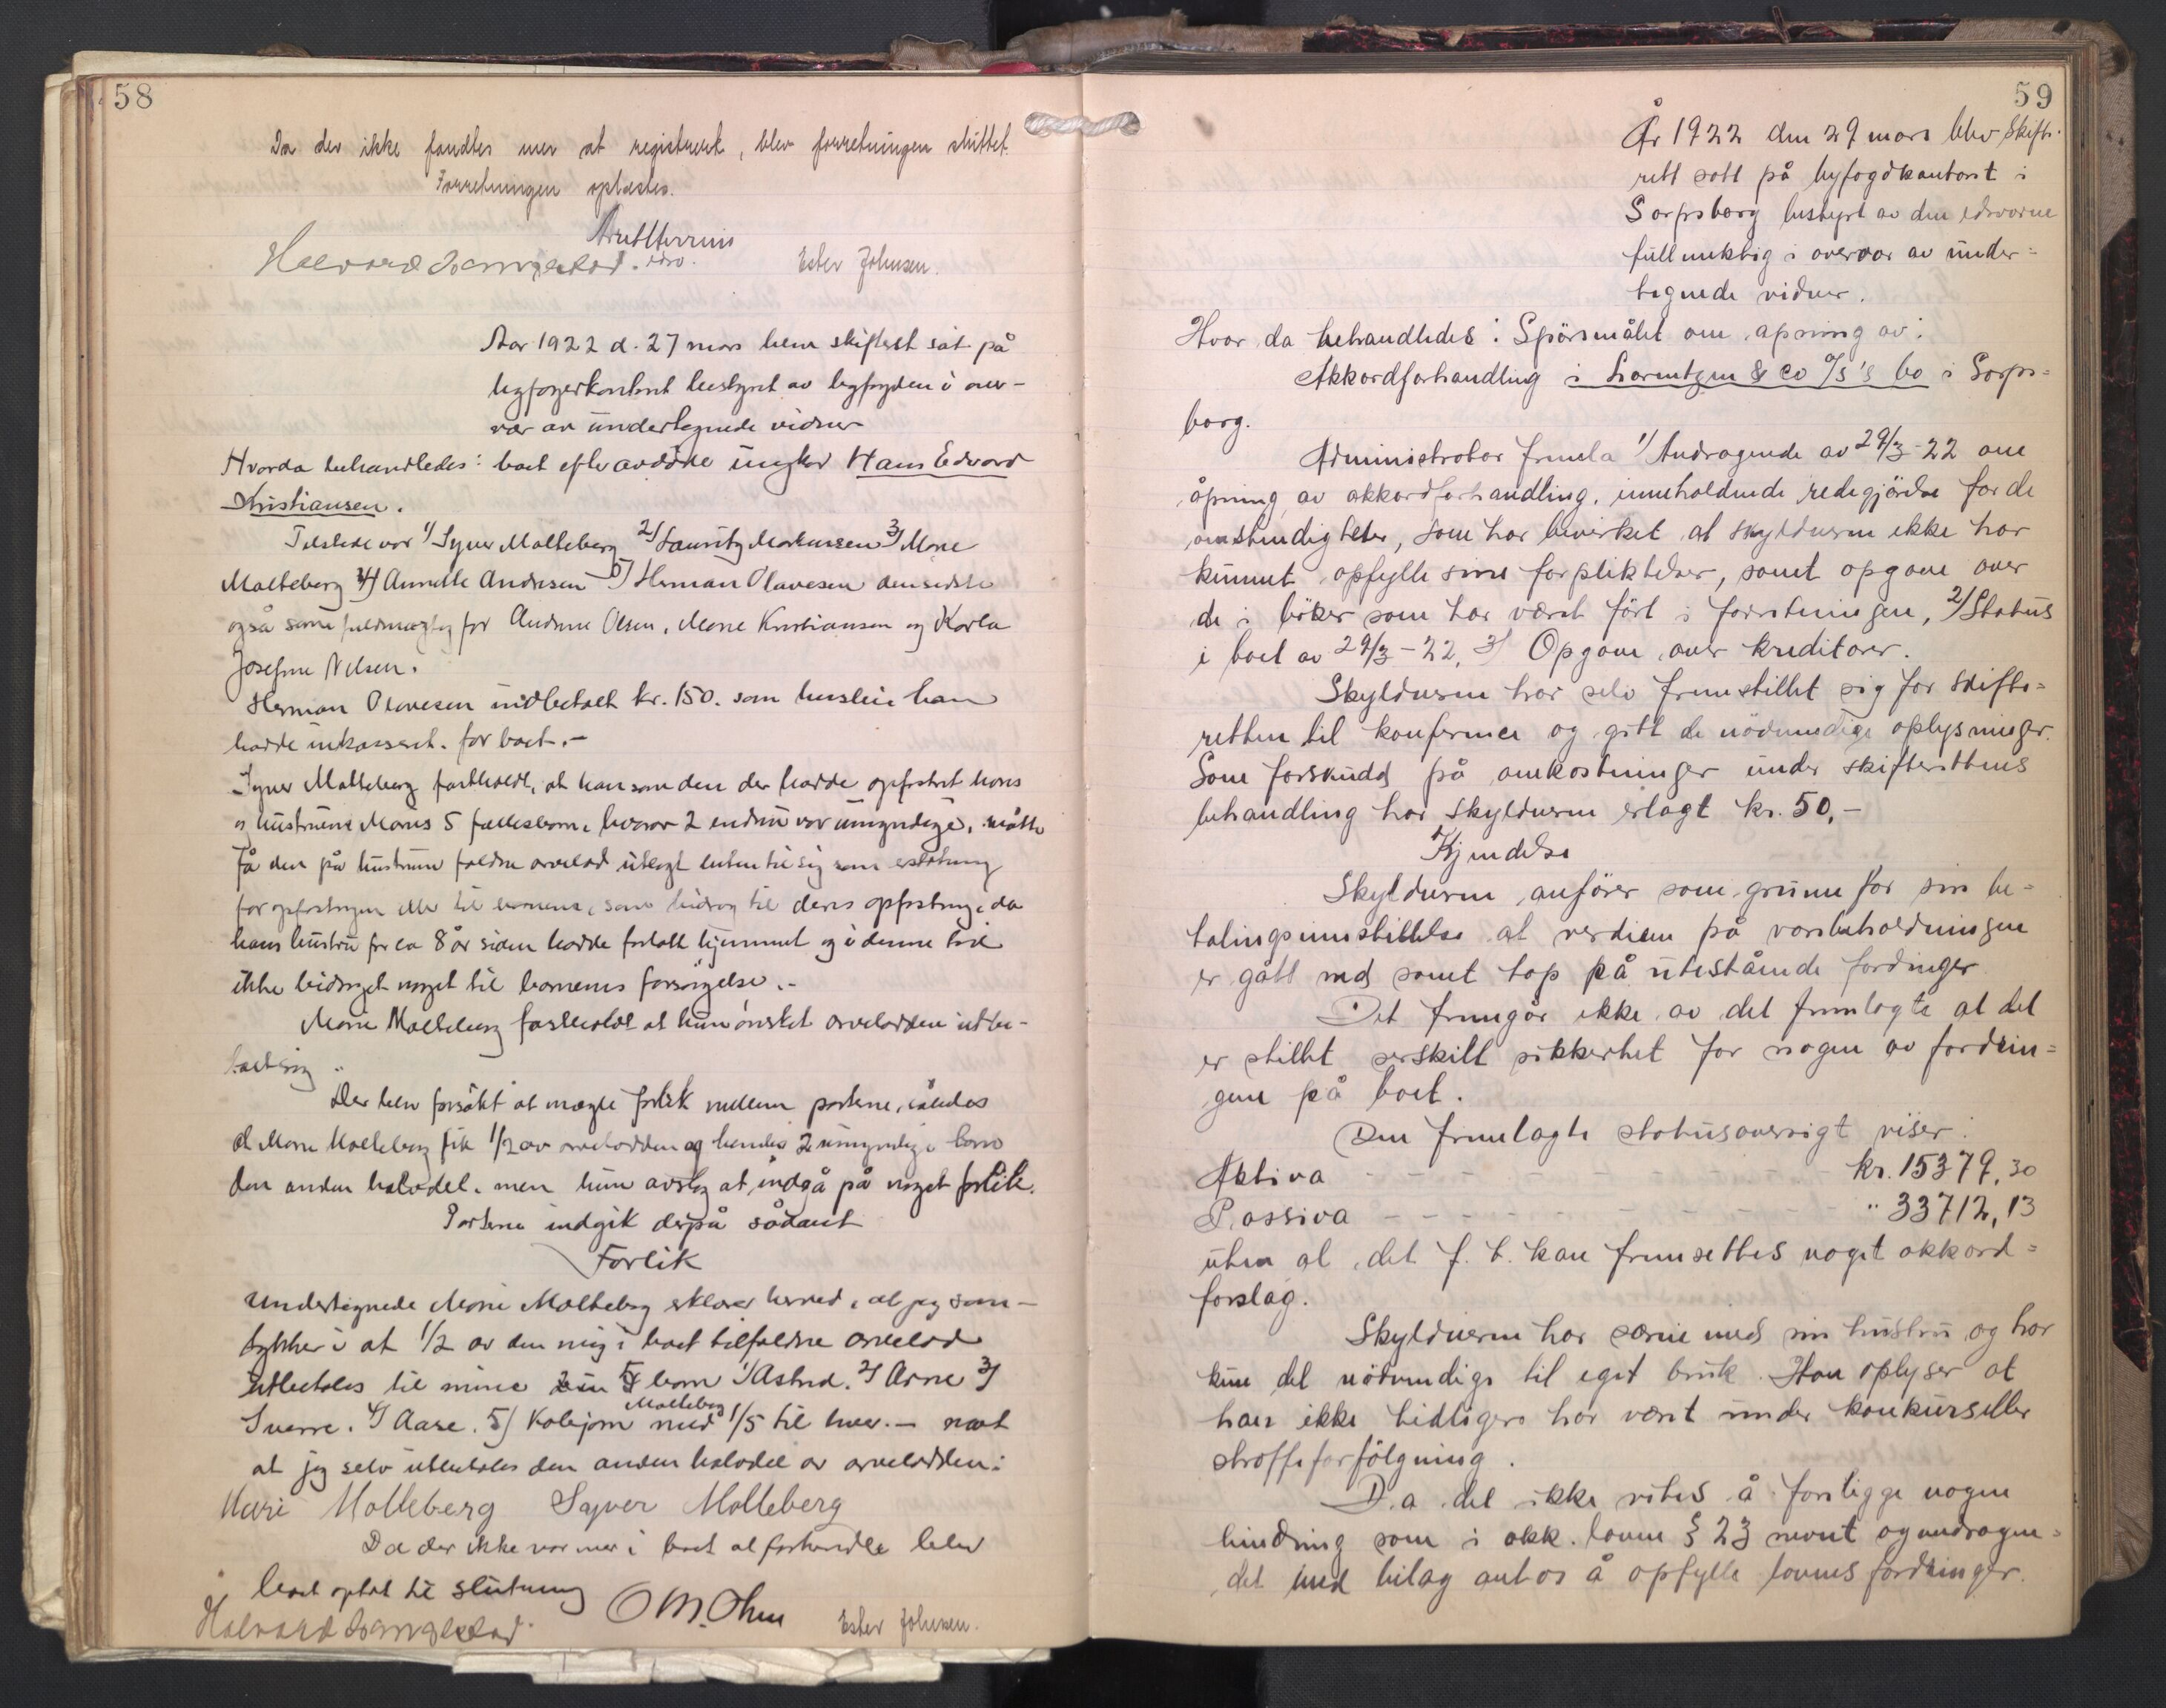 58
Da der ikke fandtes mer at registrere, blev forretningen sluttet.
Forretningen oplæstes.
edsv.
Halvard Ester Johnsen.
Aar 1922 d. 27 mars blev skifteret sat på
byfogetkontoret bestyret av byfogden i over-
vær av undertegnede vidner
Hvorda behandledes: boet efter avdöde ungkar Hans Edvard
Kristiansen.
Tilstede var 1/ Syver Molteberg 2/ Lauritz Markussen 3/ Marie
Molteberg 4/ Annette Andresen 5/ Herman Olavesen den sidste
også som fuldmægtig for Andrine Olsen, Marie Kristiansen og Karla
Josefine Nilsen.
Herman Olavesen indbetalt kr. 150. som husleie han
hadde inkassert. for boet.-
Syver Molteberg fastholdt, at han som den der hadde opfostret hans
og hustruens Maries 5 fællesbørn, hvorav 2 endnu var umyndige, måtte
få den på hustruen faldne arvelod utlagt enten til sig som erstatning
for opfostringen eller til börnene, som bidrag til deres opfostring, da
hans hustru for ca 8 år siden hadde forlatt hjemmet og i denne tid
ikke bidraget noget til børnenes forsörgelse.-
Marie Molteberg fastholdt at hun ønsket arvelodden utbe-
talt sig
Der blev forsökt at mægle forlik mellem partene, således
at Marie Molteberg fik 1/2 av arvelodden og hendes 2 umyndige barn
den anden halvdel. men hun avslog at indgå på noget forlik.
Partene indgik derpå sådant
Forlik
Undertegnede Marie Molteberg erklærer herved, at jeg sam-
tykker i at 1/2 av den mig i boet tilfaldne arvelod
utbetales til mine 5 barn 1/ Astrid. 2/ Arne 3/
Sverre. 4/ Aase. 5/ Kolbjørn Molteberg med 1/5 til hver.- mot
at jeg selv utbetales den anden halvdel av arvelodden:
Marie Molteberg Syver Molteberg
Da der ikke var mer i boet at forhandle blev
boet optat til slutning
Halvard O M. Ohm Ester Johnsen.
59
År 1922 den 29 mars blev skifte-
rett satt på byfogdkontoret i
Sarpsborg bestyrt av den edsvorne
fullmektig i overvær av under=
tegnede vidner.
Hvor da behandledes: Spörsmålet om åpning av:
Akkordforhandling i Lorentzen & Co A/S's bo i Sarps=
borg.
Administrator fremla 1/ Andragende av 29/3-22 om
åpning av akkordforhandling, inneholdende redegjörelse for de
omstendigheter, som har bevirket at skyldneren ikke har
kunnet opfylle sine forpliktelser, samt opgave over
de i böker som har været fört i forretningen, 2/ Status
i boet av 29/3-22, 3/ Opgave over kreditorer.
Skyldneren har selv fremstillet sig for skifte=
retten til konferance og gitt de nödvendige oplysninger.
Som forskudd på omkostninger under skifterettens
behandling har skyldneren erlagt kr. 50,-
Kjendelse
Skyldneren anförer som grunn for sin be=
talingsinnstillelse at verdien på varebeholdningen
er gått ned samt tap på utestående fordringer
Det fremgår ikke av det fremlagte at det
er stillet serskilt sikkerhet for nogen av fordrin=
gene på boet.
Den fremlagte statusoversigt viser:
Aktiva - - - - - - kr. 15379,30
Passiva - - - - - - " 33712,13
uten at det f. t. kan fremsettes noget akkord=
forslag.
Skyldneren har særeie med sin hustru og har
kun det nödvendige til eget bruk. Han oplyser at
han ikke tidligere har været under konkurs eller
straffeforfölgning.
Da det ikke vites å foreligge nogen
hindring som i akk. loven § 23 nevnt og andragen=
det med bilag antas å opfylle lovens fordringer.